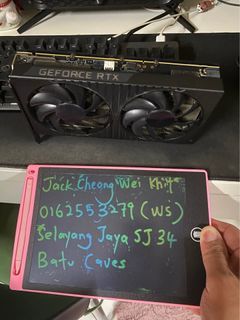 GEFORCE RTX
Jack Cheong Wei Khye
0162553279 (WS)
Selayang Jaya SJ 34
Batu Caves